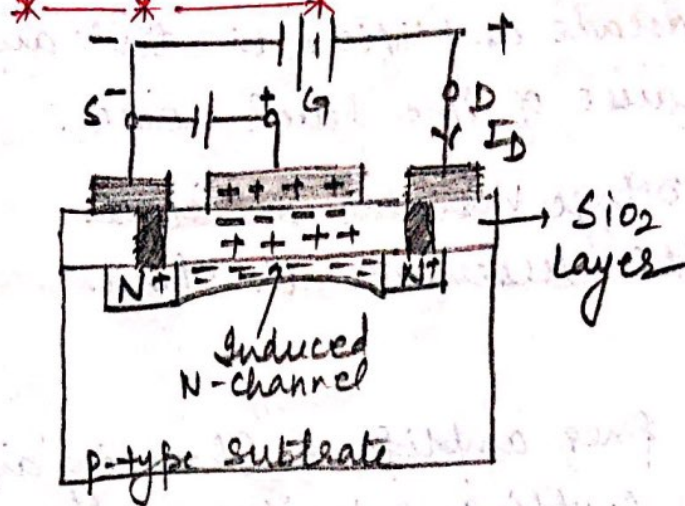 - +
S - + G D
I_D
+ + + +
- - - -
+ + + +
SiO2
Layer
N+ - - - - - - N+
Induced
N-channel
p-type substrate